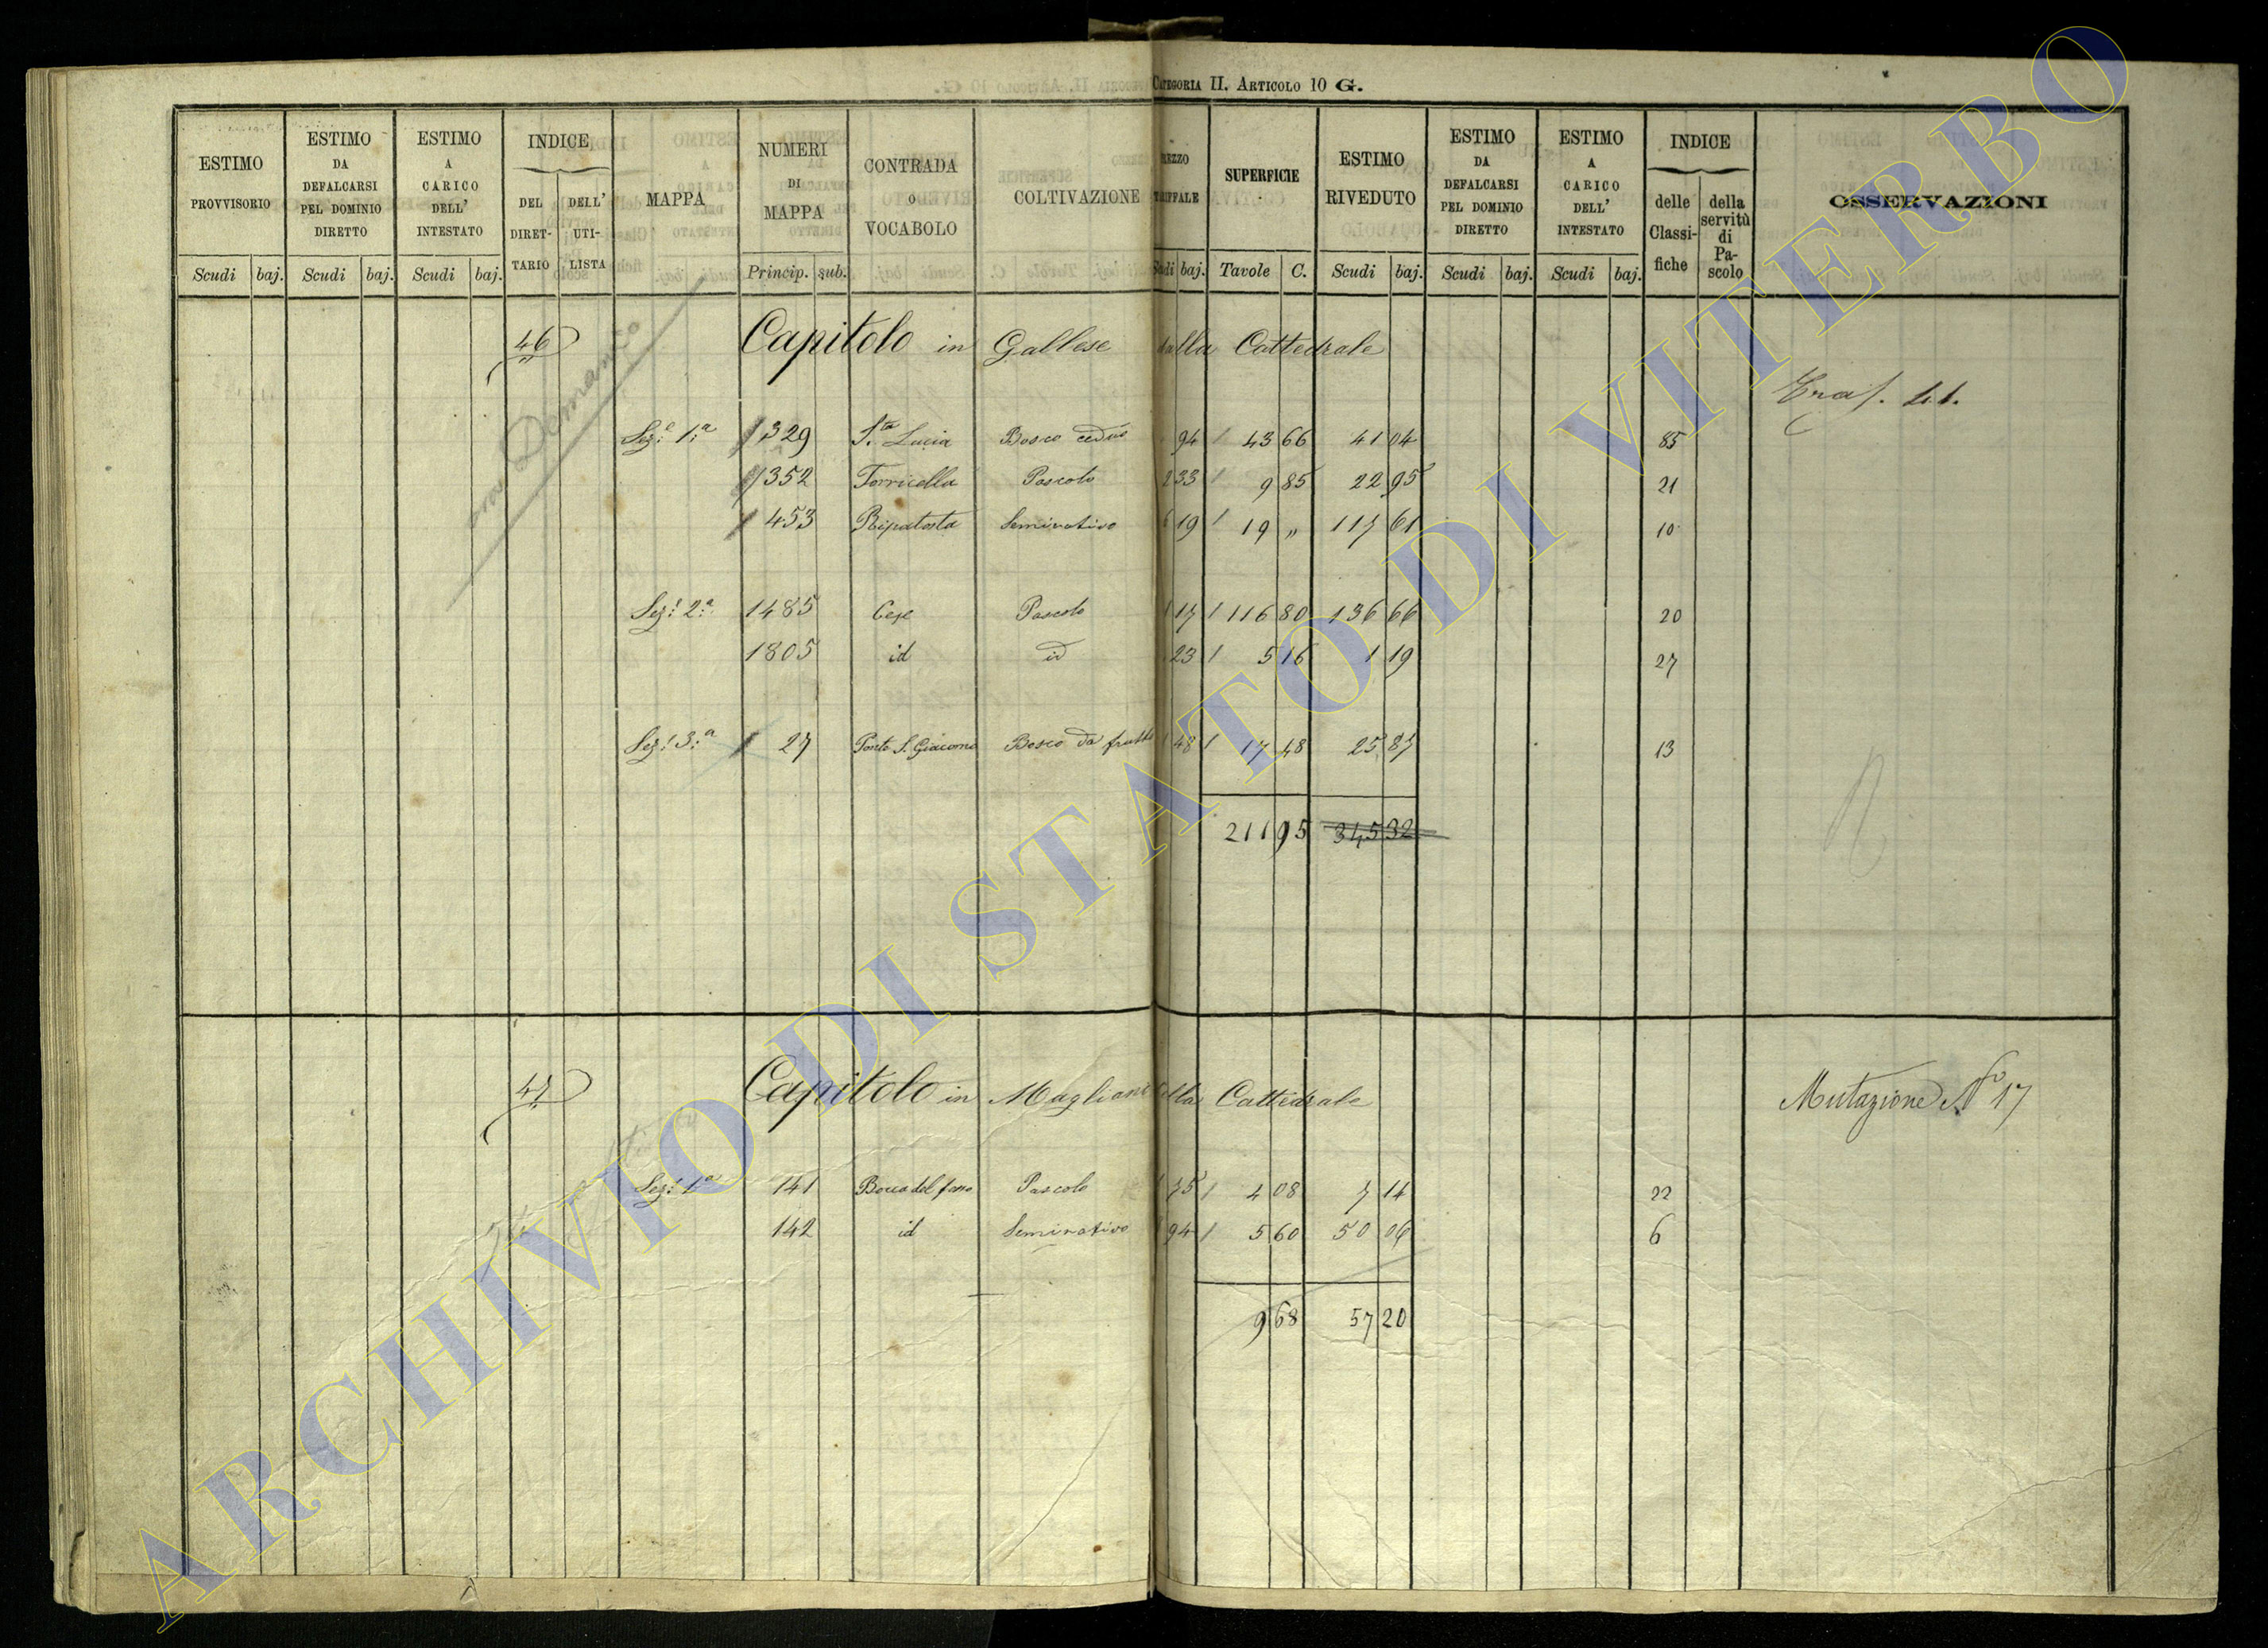 CATEGORIA II. ARTICOLO 10 G.
ESTIMO PROVVISORIO Scudi baj.
ESTIMO DA DEFALCARSI PEL DOMINIO DIRETTO Scudi baj.
ESTIMO A CARICO DELL' INTESTATO Scudi baj.
INDICE DEL DIRET-TARIO DELL' UTI-LISTA
MAPPA
NUMERI DI MAPPA Princip. sub.
CONTRADA O VOCABOLO
COLTIVAZIONE
PREZZO TARIFFALE Scudi baj.
SUPERFICIE Tavole C.
ESTIMO RIVEDUTO Scudi baj.
ESTIMO DA DEFALCARSI PEL DOMINIO DIRETTO Scudi baj.
ESTIMO A CARICO DELL' INTESTATO Scudi baj.
INDICE delle Classi-fiche della servitù di Pa-scolo
OSSERVAZIONI
46 Capitolo in Gallese della Cattedrale
Demanio
Traf. 21.
Sez.e 1.a 329 S.ta Lucia Bosco ceduo 94 43 66 41 04 85
352 Torricella Pascolo 2 33 9 85 22 95 21
453 Ripatosta Seminativo 6 19 19 „ 117 61 10
Sez.e 2.a 1485 Cese Pascolo 1 17 116 80 136 66 20
1805 id id 23 5 16 1 19 27
Sez.e 3.a 27 Ponte S. Giacomo Bosco da frutto 1 48 17 48 25 87 13
211 95 345 32
47 Capitolo in Magliano della Cattedrale Mutazione No 17
Sez.e 1.a 141 Bocca del fosso Pascolo 1 75 4 08 7 14 22
142 id Seminativo 94 5 60 50 06 6
9 68 57 20
ARCHIVIO DI STATO DI VITERBO